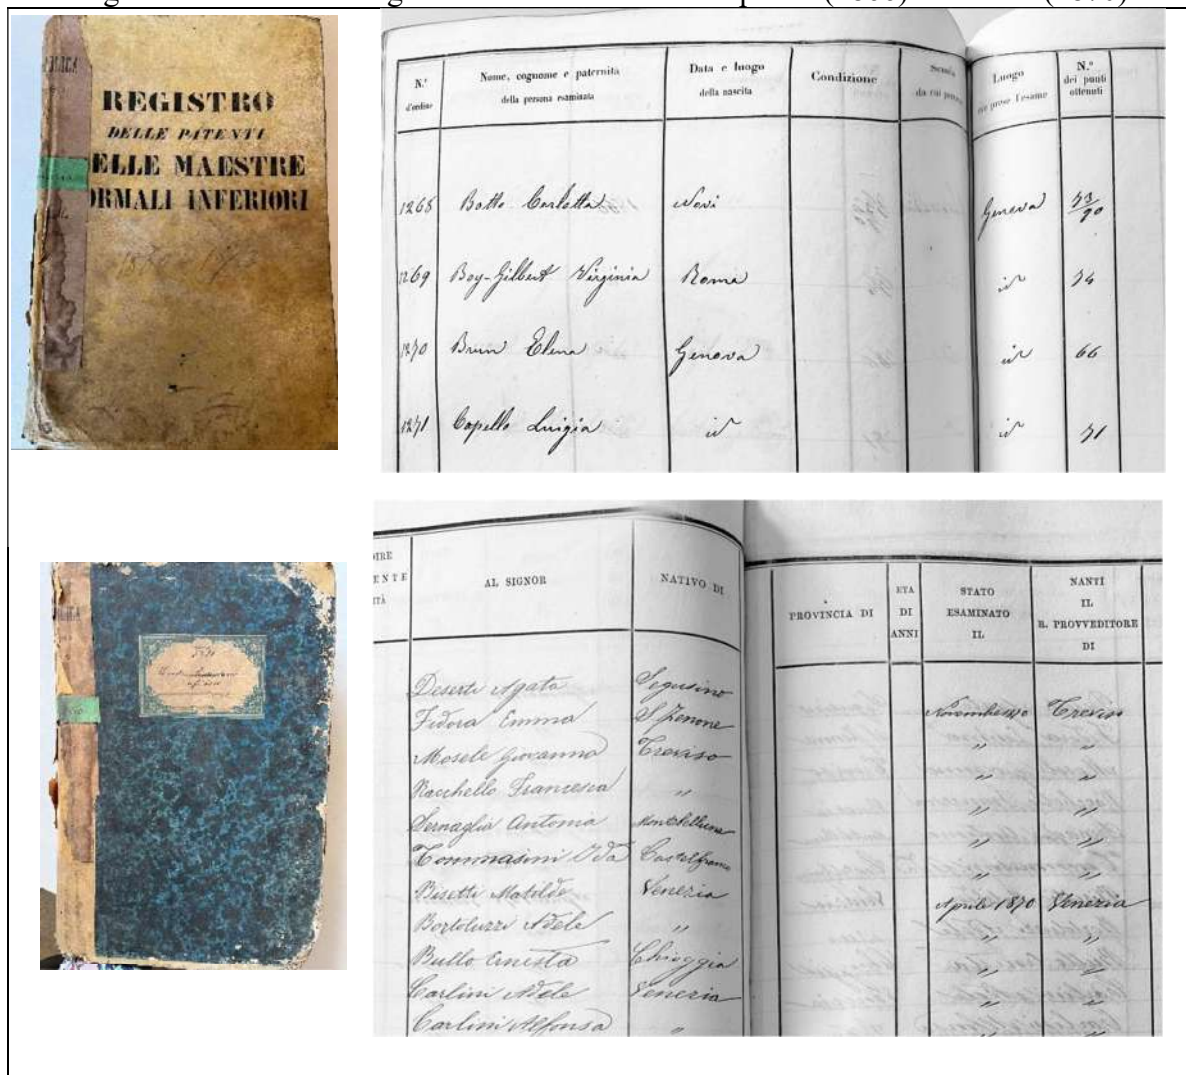 REGISTRO
DELLE PATENTI
ELLE MAESTRE
ORMALI INFERIORI
N.º d'ordine
Nome, cognome e paternità della persona esaminata
Data e luogo della nascita
Condizione
Scuola da cui
Luogo ove prese l'esame
N.º dei punti ottenuti
1268 Botto Carlotta Novi Genova 73/90
1269 Boy-Gilbert Virginia Roma id 74
1270 Brun Elena Genova id 66
1271 Capello Luigia id id 71
AL SIGNOR
NATIVO DI
PROVINCIA DI
ETA DI ANNI
STATO ESAMINATO IL
NANTI IL R. PROVVEDITORE DI
Deserti Agata Segusino
Fidora Emma S. Zenone Novembre 1870 Treviso
Mosele Giovanna Treviso " "
Rachello Francesca " " "
Sernaglia Antonia Montebelluna " "
Tommasini Ida Castelfranco " "
Bisetti Matilde Venezia Aprile 1870 Venezia
Bortoluzzi Adele " " "
Bullo Ernesta Chioggia " "
Carlini Adele Venezia " "
Carlini Alfonsa " " "